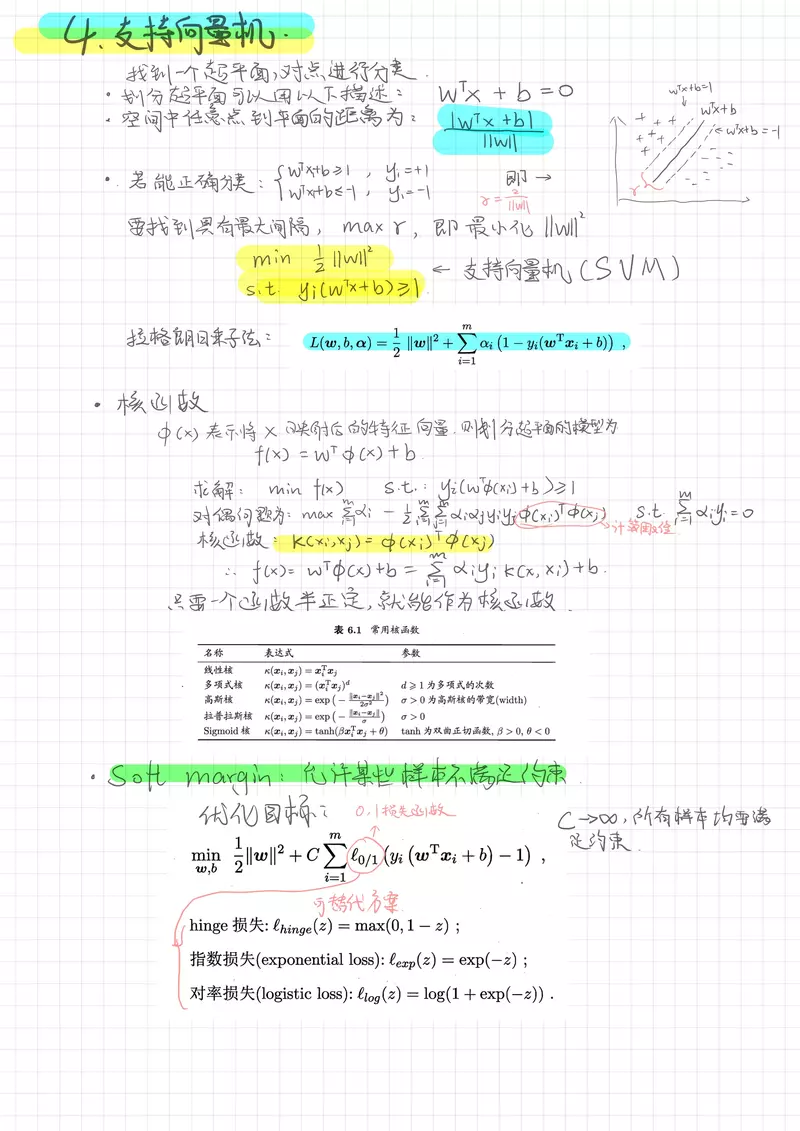 4. 支持向量机.
找到一个超平面,对点进行分类.
· 划分超平面可以用以下描述: wᵀx + b = 0
· 空间中任意点到平面的距离为: |wᵀx + b| / ||w||
wᵀx+b=1
wᵀx+b
wᵀx+b=-1
r
· 若能正确分类: { wᵀx+b≥1 , yᵢ=+1 即 →
wᵀx+b≤-1 , yᵢ=-1
r = 2/||w||
要找到具有最大间隔, max r, 即最小化 ||w||²
min 1/2 ||w||²
s.t. yᵢ(wᵀx+b)≥1
← 支持向量机 (SVM)
拉格朗日乘子法: L(w, b, α) = 1/2 ||w||² + ∑ᵢ₌₁ᵐ αᵢ (1 − yᵢ(wᵀxᵢ + b)) ,
· 核函数
φ(x) 表示将 x 映射后的特征向量.则划分超平面的模型为
f(x) = wᵀφ(x) + b.
求解: min f(x) s.t.: yᵢ(wᵀφ(xᵢ)+b)≥1
对偶问题为: max ∑ᵢ₌₁ᵐ αᵢ - 1/2 ∑ᵢ₌₁ᵐ ∑ⱼ₌₁ᵐ αᵢαⱼyᵢyⱼ φ(xᵢ)ᵀφ(xⱼ) s.t. ∑ᵢ₌₁ᵐ αᵢyᵢ=0
核函数: K(xᵢ,xⱼ) = φ(xᵢ)ᵀφ(xⱼ)
∴ f(x) = wᵀφ(x)+b = ∑ᵢ₌₁ᵐ αᵢyᵢ K(x, xᵢ)+b.
只要一个函数半正定, 就能作为核函数.
表 6.1 常用核函数
名称 表达式 参数
线性核 κ(xᵢ, xⱼ) = xᵢᵀxⱼ
多项式核 κ(xᵢ, xⱼ) = (xᵢᵀxⱼ)ᵈ d ⩾ 1 为多项式的次数
高斯核 κ(xᵢ, xⱼ) = exp (− ||xᵢ−xⱼ||² / 2σ²) σ > 0 为高斯核的带宽(width)
拉普拉斯核 κ(xᵢ, xⱼ) = exp (− ||xᵢ−xⱼ|| / σ) σ > 0
Sigmoid 核 κ(xᵢ, xⱼ) = tanh(βxᵢᵀxⱼ + θ) tanh 为双曲正切函数, β > 0, θ < 0
· Soft margin: 允许某些样本不满足约束.
优化目标: 0,1损失函数
C→∞, 所有样本均要满
足约束.
min w,b 1/2 ||w||² + C ∑ᵢ₌₁ᵐ ℓ₀/₁ (yᵢ (wᵀxᵢ + b) − 1) ,
可替代方案
hinge 损失: ℓhinge(z) = max(0, 1 − z) ;
指数损失(exponential loss): ℓexp(z) = exp(−z) ;
对率损失(logistic loss): ℓlog(z) = log(1 + exp(−z)) .